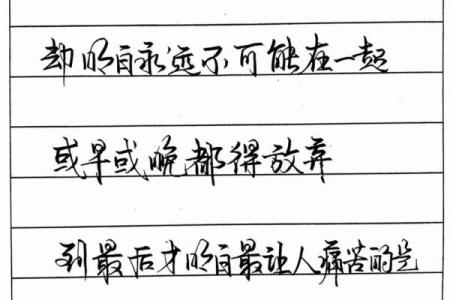 却明白永远不可能在一起
或早或晚都得放弃
到最后才明白最让人痛苦的是